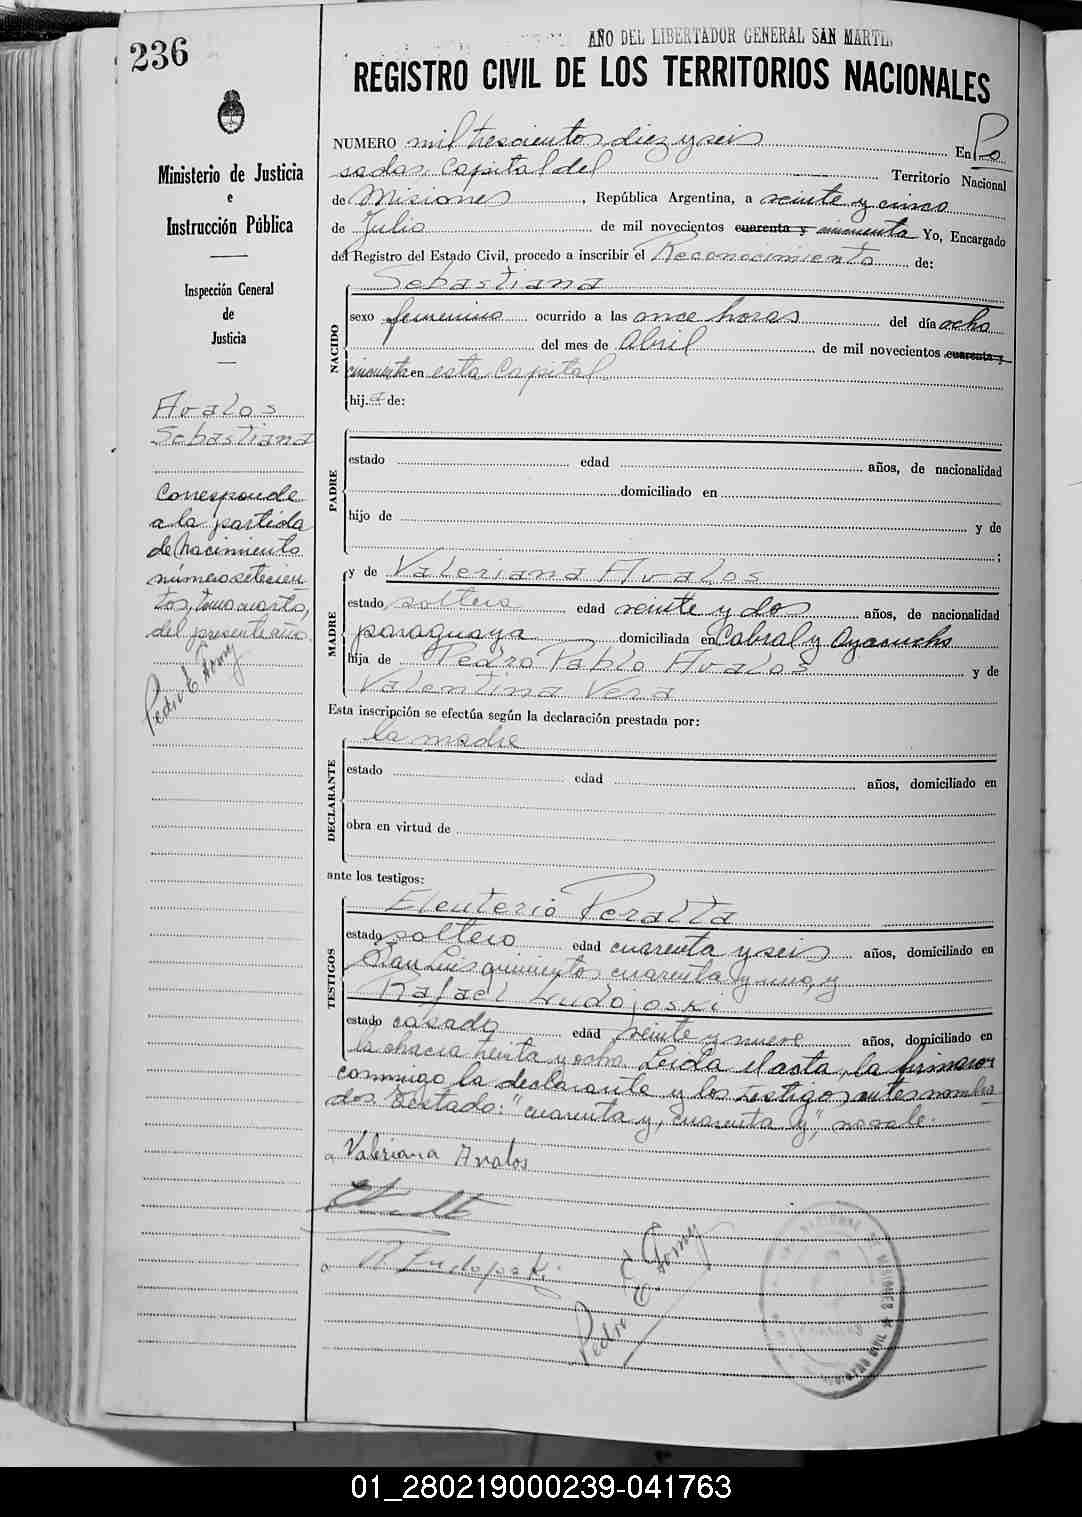 236
AÑO DEL LIBERTADOR GENERAL SAN MARTIN
REGISTRO CIVIL DE LOS TERRITORIOS NACIONALES
Ministerio de Justicia
e
Instrucción Pública
Inspección General
de
Justicia
Avalos
Sebastiana
Corresponde
a la partida
de Nacimiento
número setecien
tos, tomo cuarto,
del presente año.
Pedro E. Gomy
NUMERO mil trescientos diez y seis En Po
sadas, Capital del Territorio Nacional
de Misiones, República Argentina, a veinte y cinco
de Julio de mil novecientos cuarenta y cincuenta Yo, Encargado
del Registro del Estado Civil, procedo a inscribir el Reconocimiento de:
NACIDO
Sebastiana
sexo femenino ocurrido a las once horas del día ocho
del mes de Abril de mil novecientos cuarenta y
cincuenta en esta Capital
hija de:
PADRE
estado edad años, de nacionalidad
domiciliado en
hijo de y de
;
MADRE
y de Valeriana Avalos
estado soltera edad veinte y dos años, de nacionalidad
paraguaya domiciliada en Cabral y Ayacucho
hija de Pedro Pablo Avalos y de
Valentina Vera
Esta inscripción se efectúa según la declaración prestada por:
DECLARANTE
la madre
estado edad años, domiciliado en
obra en virtud de
ante los testigos:
TESTIGOS
Eleuterio Peralta
estado soltero edad cuarenta y seis años, domiciliado en
San Luis quinientos cuarenta y uno, y
Rafael Ludojoski
estado casado edad veinte y nueve años, domiciliado en
la chacra treinta y ocho. Leída el acta, la firmaron
conmigo la declarante y los testigos antes nombra
dos. Testado: "cuarenta y, cuarenta y", no vale.
Valeriana Avalos
R. Ludojoski
Pedro E. Gomy
REGISTRO CIVIL
MISIONES
01_280219000239-041763